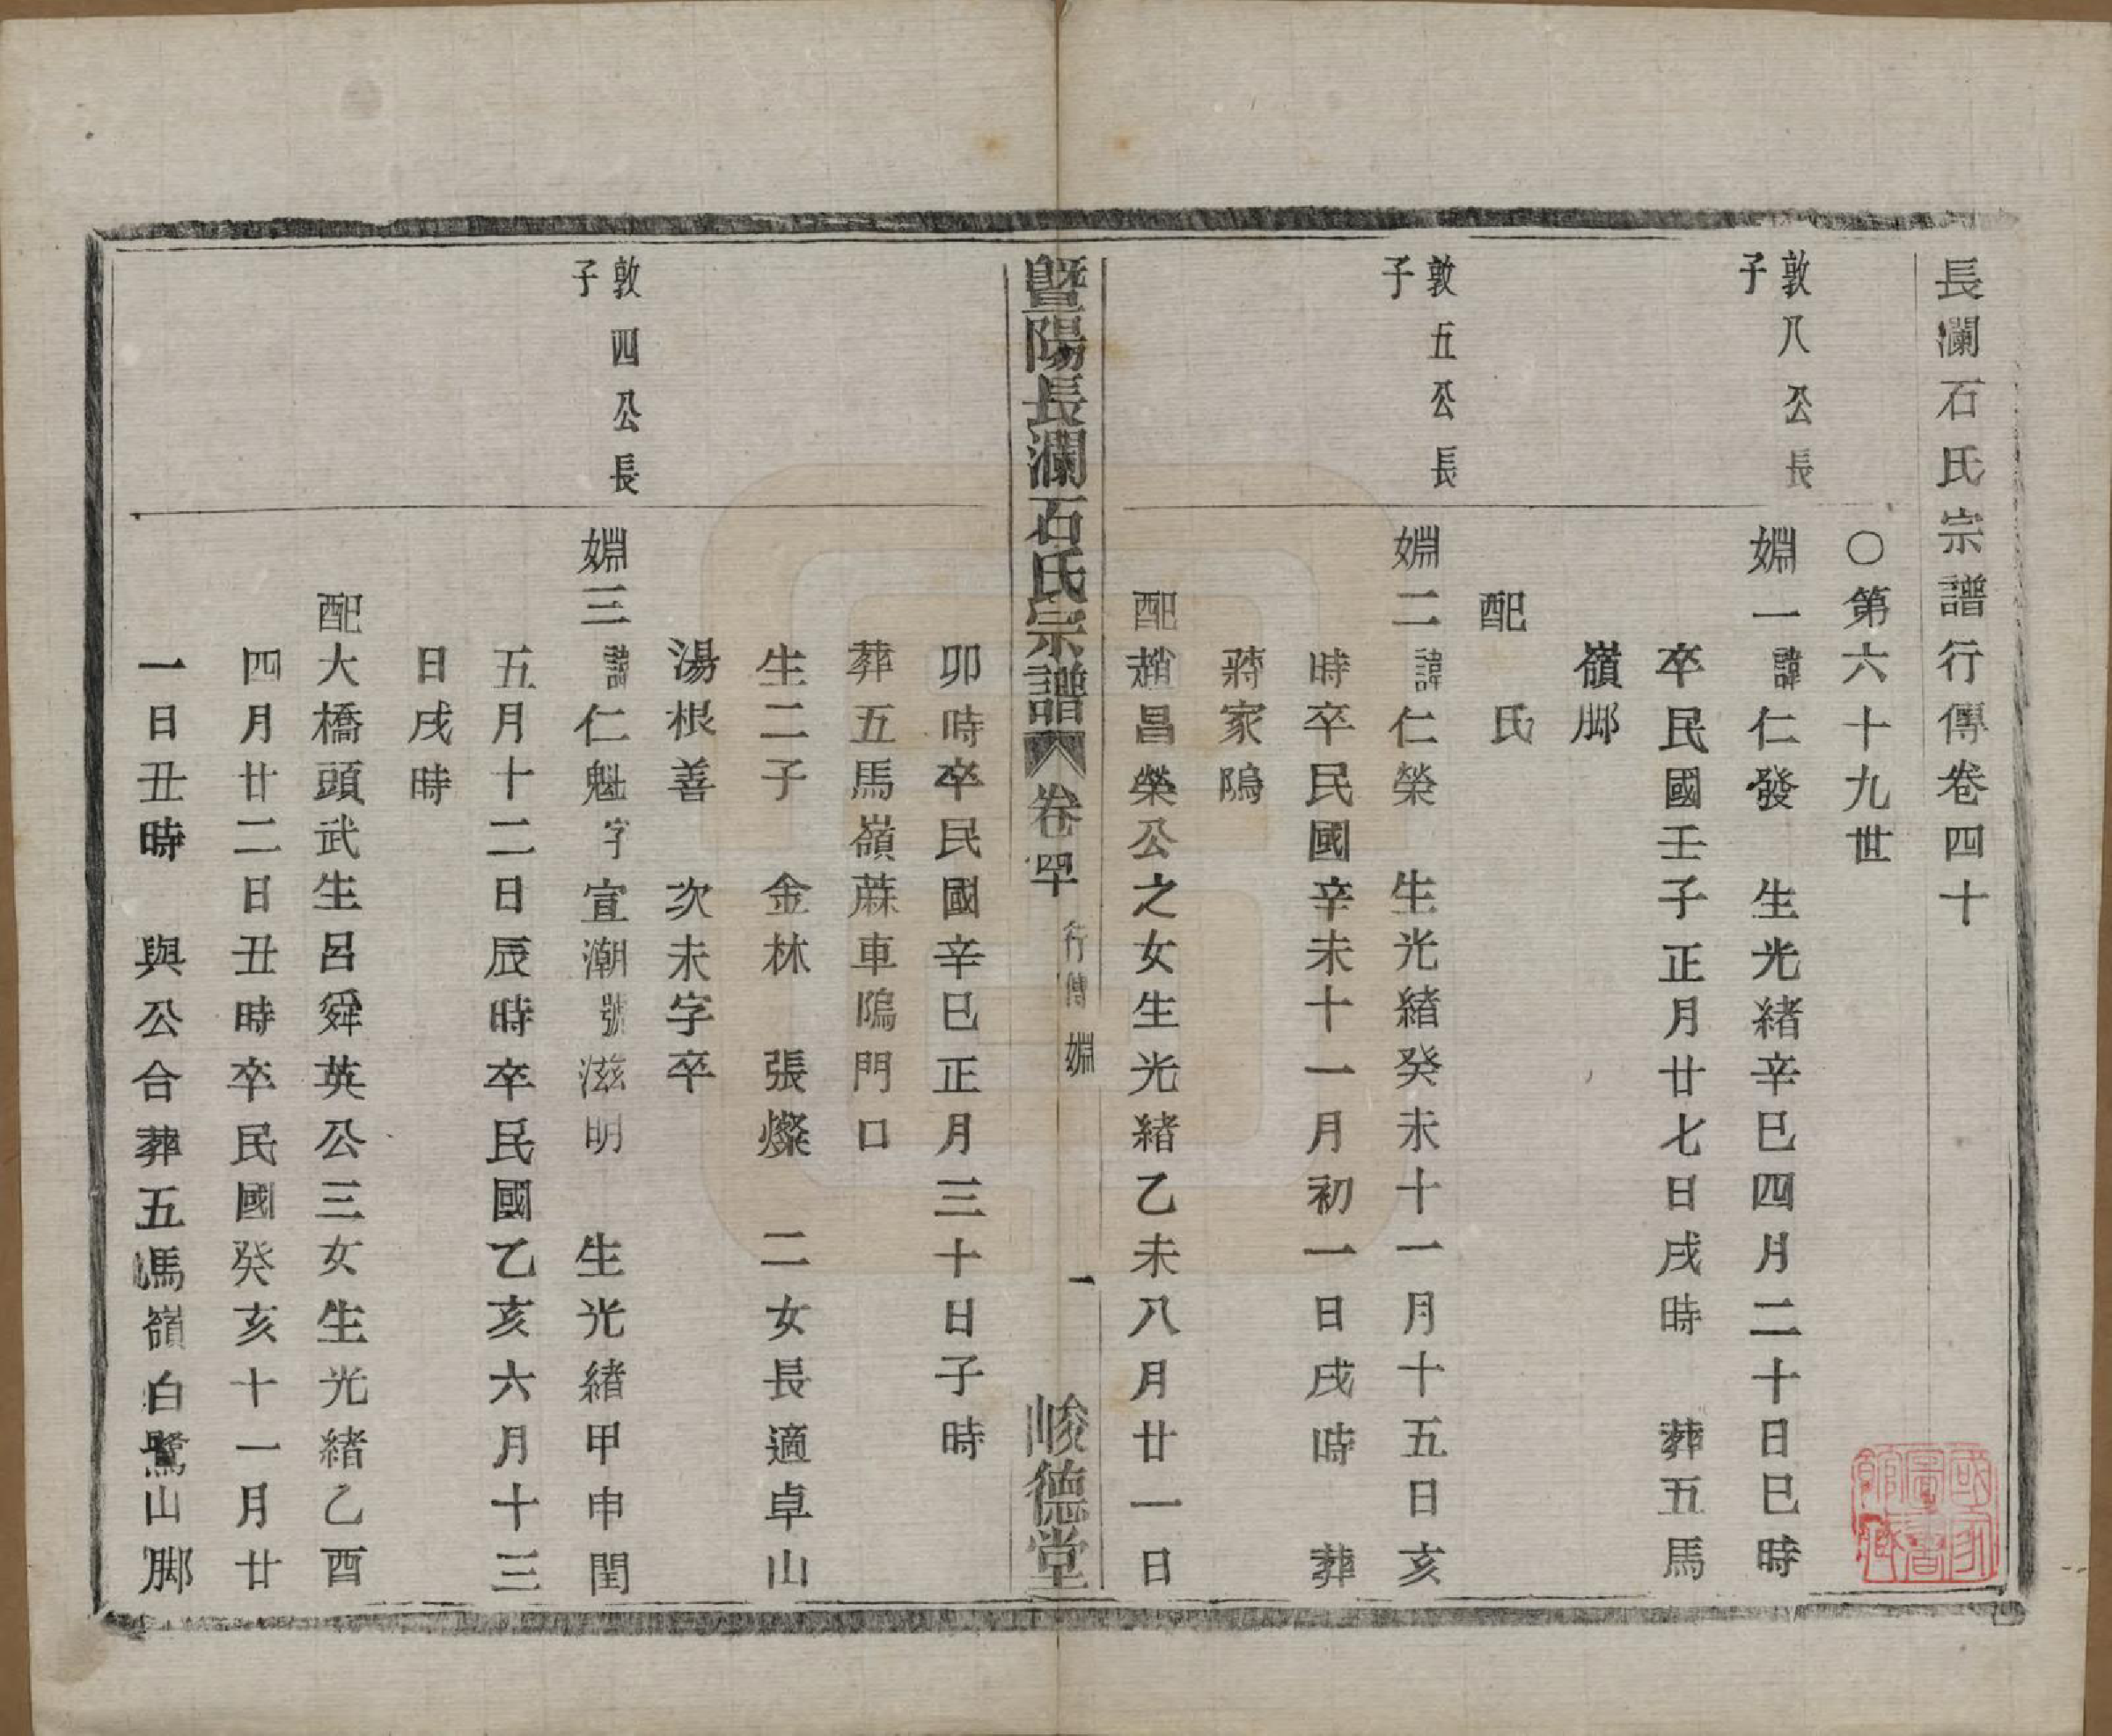 長瀾石氏宗譜行傳卷四十
○第六十九世
敦八公長子
婣一諱仁發　生光緒辛巳四月二十日巳時
卒民國壬子正月廿七日戌時　葬五馬
嶺脚
配　氏
敦五公長子
婣二諱仁榮　生光緒癸未十一月十五日亥
時卒民國辛未十一月初一日戌時　葬
蔣家隖
配趙昌榮公之女生光緒乙未八月廿一日
暨陽長瀾石氏宗譜　卷四十　行傳　婣　一　峻德堂
卯時卒民國辛巳正月三十日子時
葬五馬嶺蔴車隖門口
生二子　金林　張燦　二女長適卓山
湯根善　次未字卒
敦四公長子
婣三諱仁魁字宣潮號滋明　生光緒甲申閏
五月十二日辰時卒民國乙亥六月十三
日戌時
配大橋頭武生呂舜英公三女生光緒乙酉
四月廿二日丑時卒民國癸亥十一月廿
一日丑時　與公合葬五馬嶺白鷺山脚
國家圖書館藏